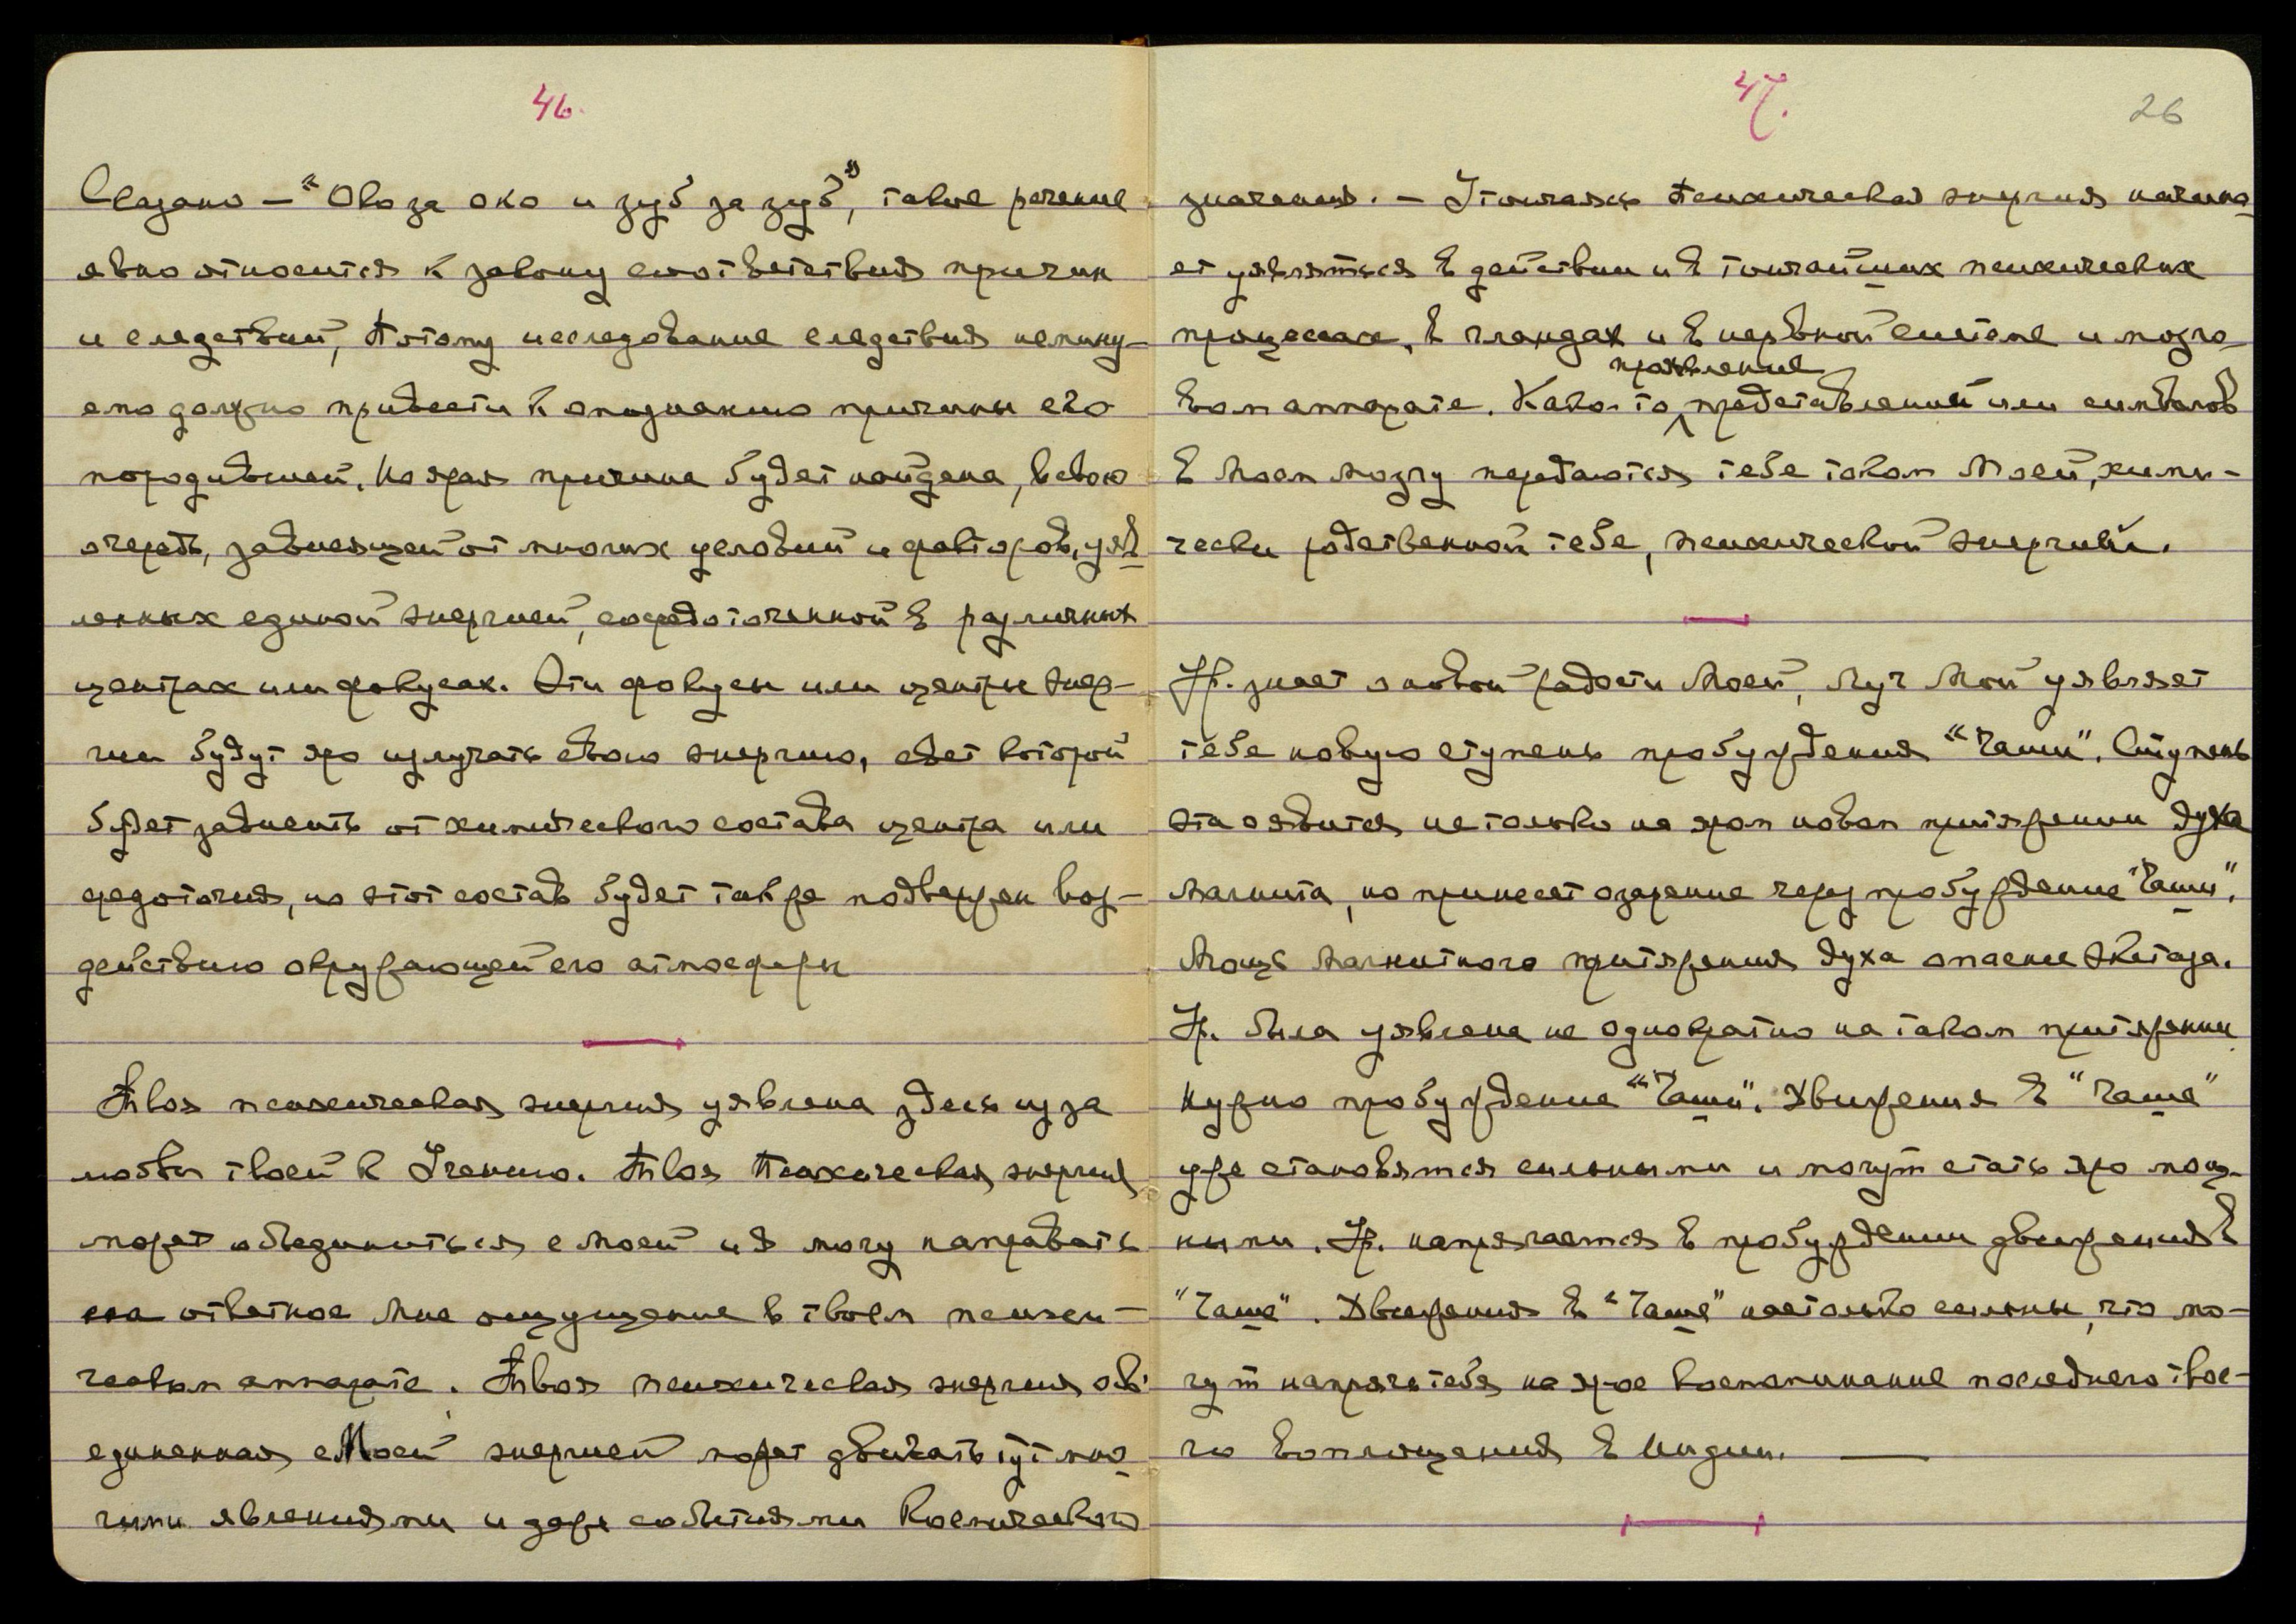 46.
Сказано — "Око за око и зуб за зуб", такое речение
явно относится к закону соответствия причин
и следствий, Потому исследование следствия немину-
емо должно привести к опознанию причины его
породившей. Но ярая причина будет найдена, в свою
очередь, зависящей от многих условий и факторов, уяв
ленных единой энергией, сосредоточенной в различных
центрах или фокусах. Эти фокусы или центры энер-
гии будут яро излучать свою энергию, свет которой
будет зависеть от химического состава центра или
средоточия, но этот состав будет также подвержен воз-
действию окружающей его атмосферы
Твоя психическая энергия уявлена здесь из за
любви твоей к Учению. Твоя Психическая энергия
может объединиться с Моей и Я могу направлять
ответное Мне ощущение в твоем психи-
ческом аппарате. Твоя психическая энергия об'
единенная с Моей энергией может двигать тут мно
гими явлениями и даже событиями Космического
47.
26
значения. — Утончаясь Психическая энергия начина
ет уявляться в действии и в тончайших психических
процессах, в гландах и в нервной системе и мозго
вом аппарате. Како-то
проявление
представлений или символов
в Моем мозгу передаются тебе током Моей, хими-
чески родственной тебе, психической энергии.
Ур. знает о новой радости Моей, Луч Мой уявляет
тебе новую ступень пробуждения "Чаши". Ступень
эта явится не только на яром новом притяжении духа
Магнита, но принесет озарение через пробуждение "Чаши".
Мощь Магнитного притяжения духа опаснее экстаза.
Ур. была уявлена не однократно на таком притяжении
Нужно пробуждение "Чаши". Движения в "Чаше"
уже становятся сильными и могут стать яро мощ-
ными. Ур. напрягается в пробуждении движения в
"Чаше". Движения в "Чаше" настолько сильны, что мо-
гут напрячь тебя на ярое воспоминание последнего твое-
го воплощения в Индии. —